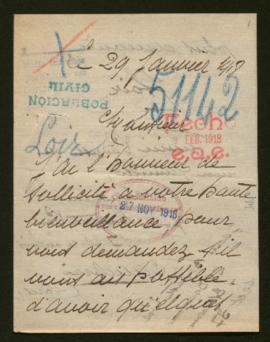 29 Janvier 1918
51142
POBLACION
CIVIL
FEB. 1918
Monsieur
Loir
J'ai l'honneur de
Sollicité a votre haute
bienveillance pour
27 NOV 1918
vous demandez s'il
vous est possible
d'avoir quelques